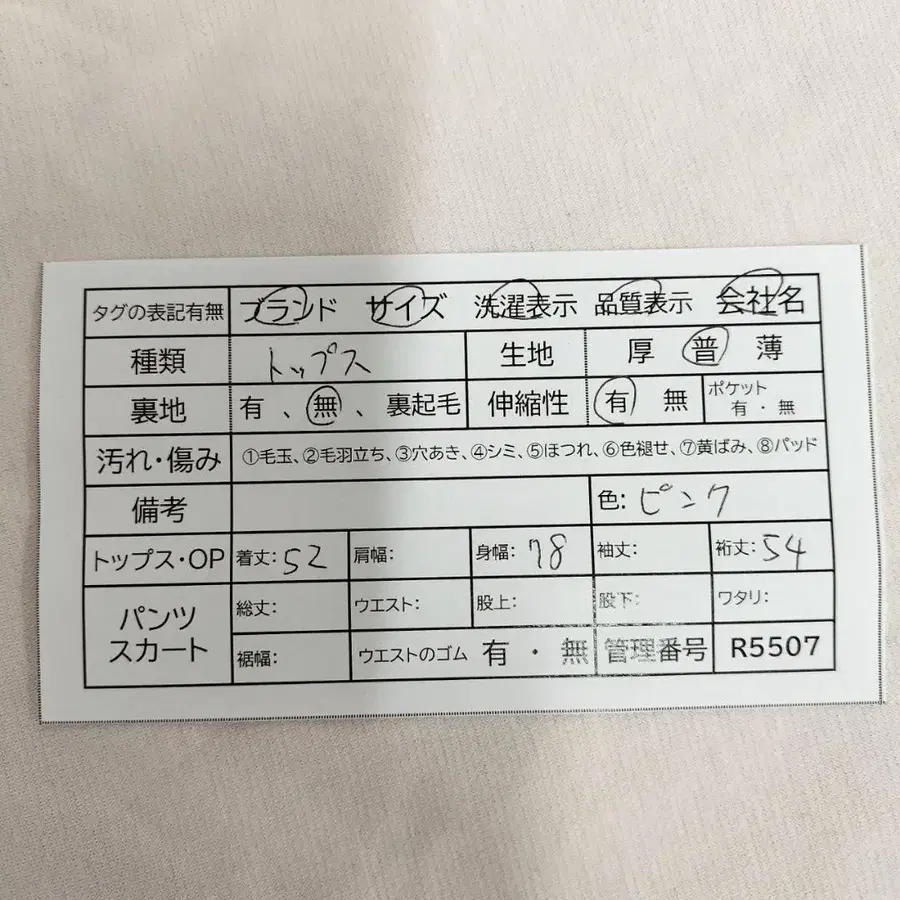 タグの表記有無 ブランド サイズ 洗濯表示 品質表示 会社名
種類 トップス 生地 厚 普 薄
裏地 有 、 無 、 裏起毛 伸縮性 有 無 ポケット 有・無
汚れ・傷み ①毛玉、②毛羽立ち、③穴あき、④シミ、⑤ほつれ、⑥色褪せ、⑦黄ばみ、⑧パッド
備考 色: ピンク
トップス・OP 着丈: 52 肩幅: 身幅: 78 袖丈: 裄丈: 54
パンツ スカート 総丈: ウエスト: 股上: 股下: ワタリ:
裾幅: ウエストのゴム 有 ・ 無 管理番号 R5507